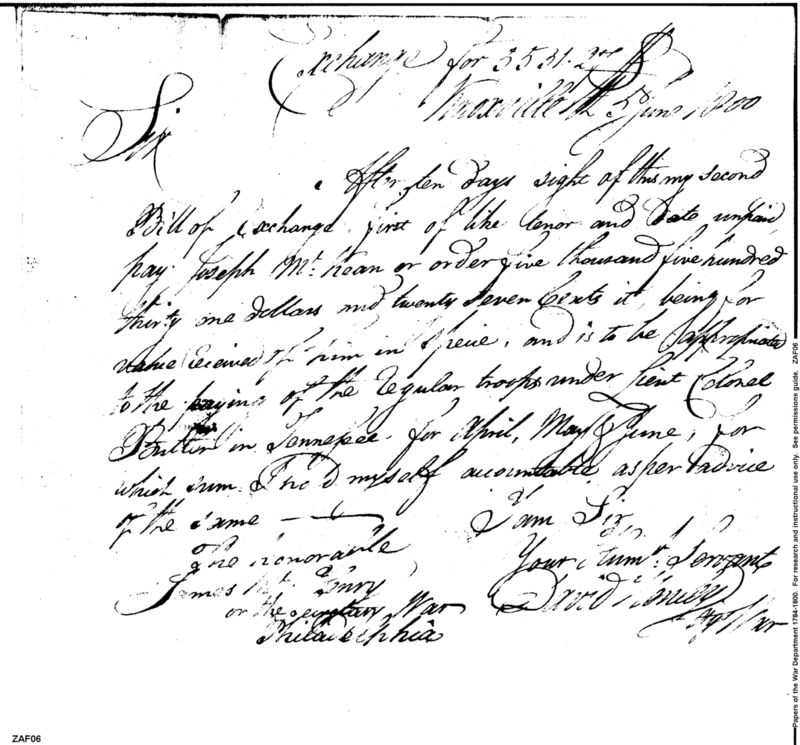 Exchange for 5531.27
Knoxville 5 June 1800
Sir
After ten days sight of this my second
Bill of Exchange first of like tenor and date unpaid
pay Joseph Mc Kean or order five thousand five hundred
thirty one dollars and twenty seven Cents it, being for
value received of him in Specie, and is to be appropriated
to the paying of the regular troops under Lieut Colonel
Butler in Tennessee for April, May & June, for
which sum I hold myself accountable as per advice
of the same
I am Sir
The Honorable
Your Humr. Servant
James Mc. Henry
David Henley
or the secretary War
Agt War
Philadelphia
ZAF06
Papers of the War Department 1784-1800. For research and instructional use only. See permissions guide. ZAF06